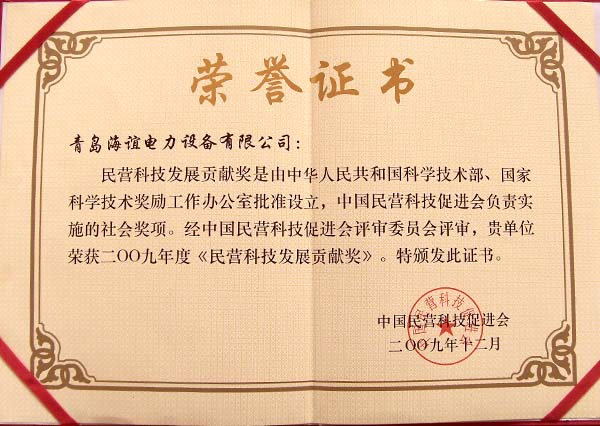 荣誉证书
青岛海谊电力设备有限公司：
民营科技发展贡献奖是由中华人民共和国科学技术部、国家
科学技术奖励工作办公室批准设立，中国民营科技促进会负责实
施的社会奖项。经中国民营科技促进会评审委员会评审，贵单位
荣获二〇〇九年度《民营科技发展贡献奖》。特颁发此证书。
中国民营科技促进会
二〇〇九年十二月
中国民营科技促进会